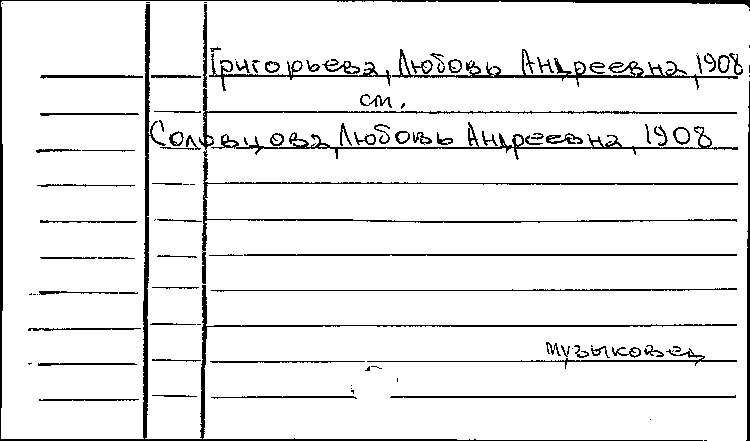 Григорьева, Любовь Андреевна, 1908
см.
Соловцова, Любовь Андреевна, 1908
музыковед